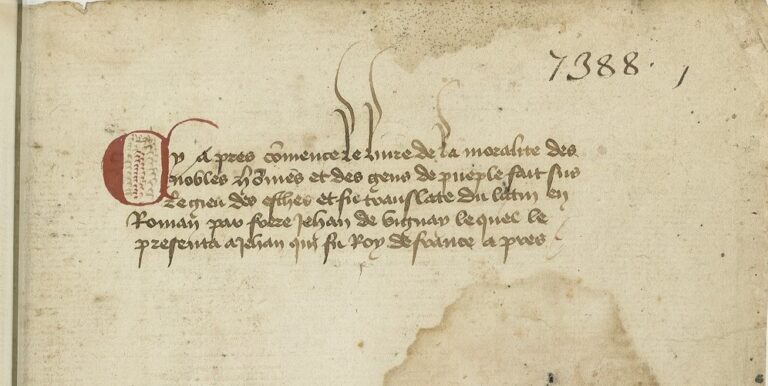 7388. 1
Cy apres cōmence le liure de la moralite des
nobles hōmes et des gens de pueple fait sus
le gieu des esches et fu translate du latin en
Roman par frere Jehan de vignay lequel le
presenta a Jehan qui fu Roy de france apres